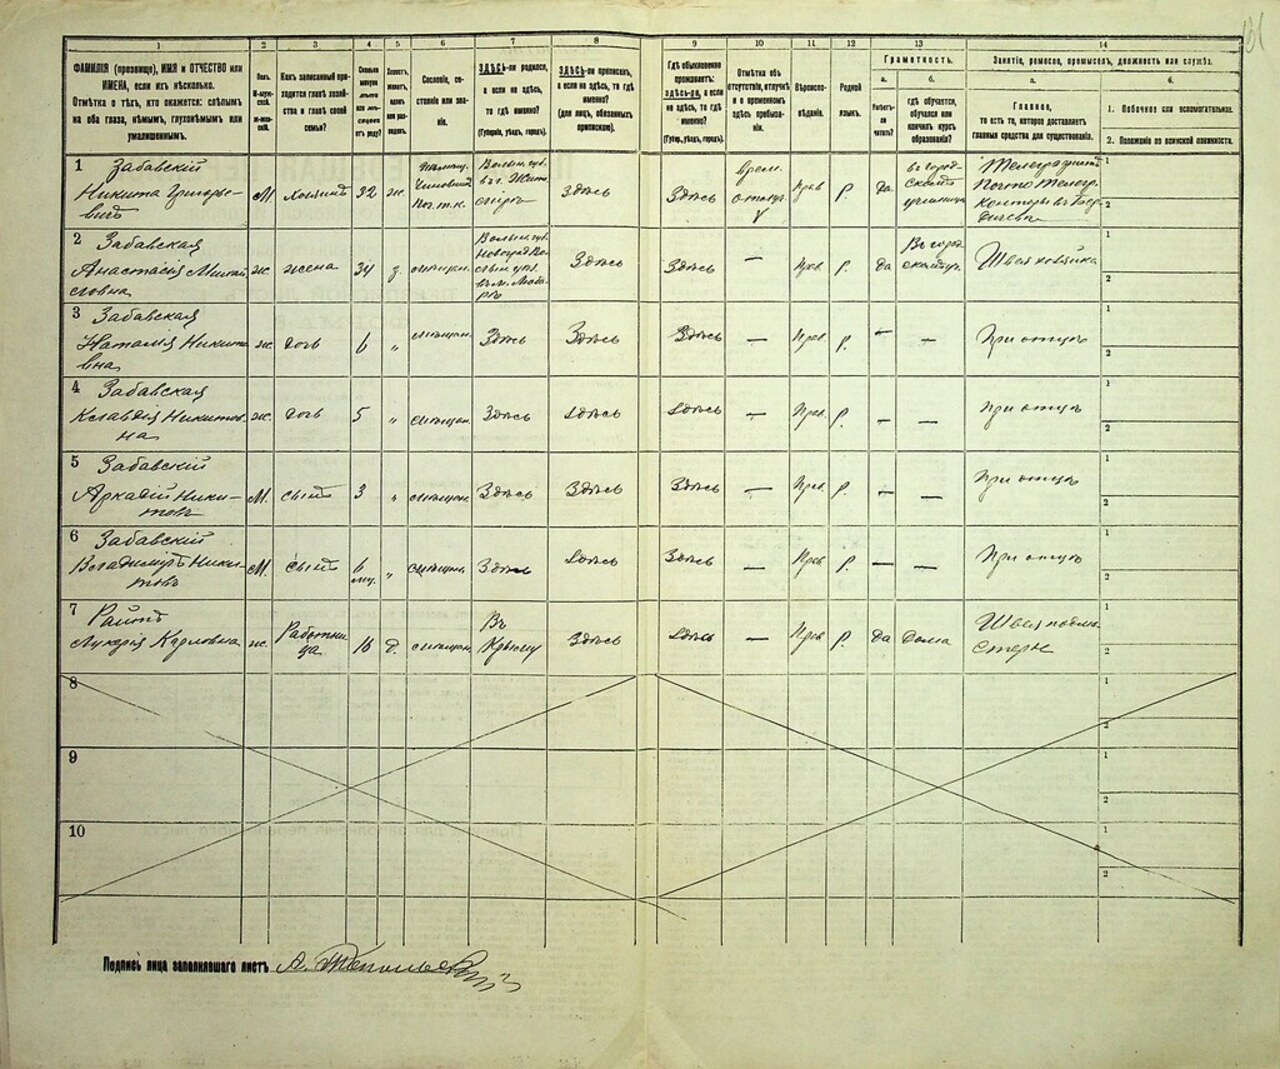 1 2 3 4 5 6 7 8 9 10 11 12 13 14
ФАМИЛІЯ (прозвище), ИМЯ и ОТЧЕСТВО или
ИМЕНА, если ихъ нѣсколько.
Отмѣтка о тѣхъ, кто окажется: слѣпымъ
на оба глаза, нѣмымъ, глухонѣмымъ или
умалишеннымъ.
Полъ.
М-муж-
ской.
Ж-жен-
скій.
Какъ записанный при-
ходится главѣ хозяй-
ства и главѣ своей
семьи?
Сколько
минуло
лѣтъ
или мѣ-
сяцевъ
отъ роду?
Холостъ,
женатъ,
вдовъ
или раз-
веденъ.
Сословіе, со-
стояніе или зва-
ніе.
ЗДѢСЬ-ли родился,
а если не здѣсь,
то гдѣ именно?
(Губернія, уѣздъ, городъ).
ЗДѢСЬ-ли приписанъ,
а если не здѣсь, то гдѣ
именно?
(для лицъ, обязанныхъ
припискою).
Гдѣ обыкновенно
проживаетъ:
здѣсь-ли, а если
не здѣсь, то гдѣ
именно?
(Губ., уѣздъ, городъ).
Отмѣтка объ
отсутствіи, отлучкѣ
и о временномъ
здѣсь пребыва-
ніи.
Вѣроиспо-
вѣданіе.
Родной
языкъ.
Грамотность.
а.
Умѣетъ-
ли
читать?
б.
гдѣ обучается,
обучался или
кончилъ курсъ
образованія?
Занятіе, ремесло, промыселъ, должность или служба.
а.
Главное,
то есть то, которое доставляетъ
главныя средства для существованія.
б.
1. Побочное или вспомогательное.
2. Положеніе по воинской повинности.
1 Забавскій
Никита Григорье-
вичъ
М хозяинъ 32 ж.
Чиновникъ
Волын. губ.
въ г. Жито
мірѣ
Здѣсь Здѣсь
врем.
отлуч.
Прав Р. Да
въ город-
скомъ
училищѣ
Телеграфистъ
Почто Телегр.
конторы въ Бер-
дичевѣ
1
2
2 Забавская
Анастасія Михай
ловна
ж жена 34 з. мѣщан.
Волын. губ.
Новоград Во-
лын. уѣз.
въ м. Любар-
рѣ
Здѣсь Здѣсь — Прав. Р. Да
Въ город.
Швея хозяйка
1
2
3 Забавская
Наталія Никити
вна
ж. дочь 6 „ мѣщан. Здѣсь Здѣсь Здѣсь — Прав. Р. — — При отцѣ
1
2
4 Забавская
Клавдія Никитов-
на
ж. дочь 5 „ мѣщан. Здѣсь Здѣсь Здѣсь — Прав. Р. — — При отцѣ
1
2
5 Забавскій
Аркадій Ники-
товъ
М. сынъ 3 „ мѣщан. Здѣсь Здѣсь Здѣсь — Прав. Р. — — При отцѣ
1
2
6 Забавскій
Владиміръ Ники-
товъ
М. сынъ 6
мц.
„ мѣщан Здѣсь Здѣсь Здѣсь — Прав. Р. — — При отцѣ
1
2
7
Лукерія Карловна
ж.
Работни
ца
16 д. мѣщан.
Въ
Крыму
Здѣсь Здѣсь — Прав Р. Да Дома
Швея
1
2
8
1
2
9
1
2
10
1
2
Подпись лица заполнявшаго листъ А.